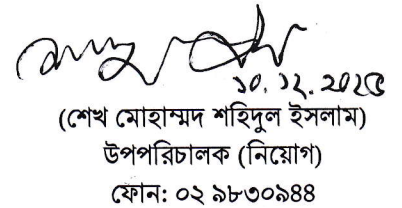 ১০.১২.২০২৫
(শেখ মোহাম্মদ শহিদুল ইসলাম)
উপপরিচালক (নিয়োগ)
ফোন: ০২ ৯৮৩০৯৪৪